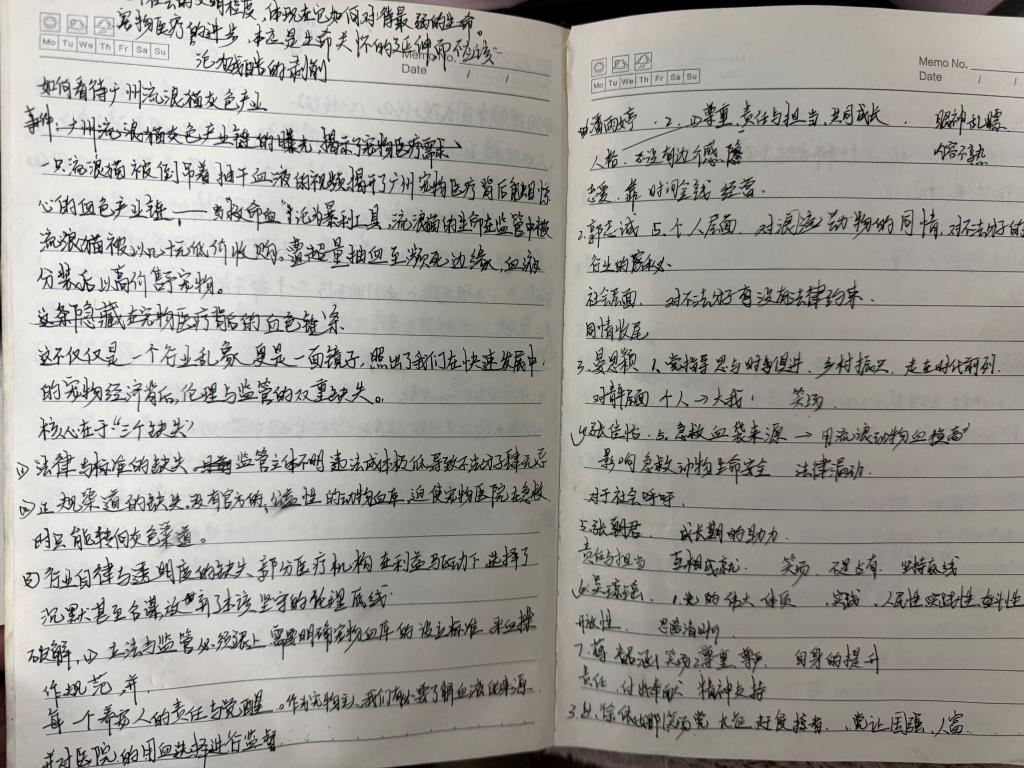 社会的文明程度，体现在它如何对待最弱的生命。
宠物医疗的进步，本应是生命关怀的延伸而不应该
沦为残酷的剥削
Mo Tu We Th Fr Sa Su
Memo No.
Date / /
如何看待广州流浪猫灰色产业
事件：广州流浪猫灰色产业链的曝光，揭示了宠物医疗
一只流浪猫被倒吊着抽干血液的视频揭开了广州宠物医疗背后触目惊
心的血色产业链，——当救命血沦为暴利工具，流浪猫的生命在监管中被
流浪猫被以几十元低价收购，超量抽血至濒死边缘，血液
分装后以高价售于宠物。
这条隐藏在宠物医疗背后的血色链条
这不仅仅是一个行业乱象，更是一面镜子，照出了我们在快速发展中
的宠物经济背后，伦理与监管的双重缺失。
核心在于“三个缺失”
① 法律与标准的缺失，监管主体不明 违法成本极低导致不法分子肆无忌
② 正规渠道的缺失，没有官方的，公益性的动物血库，迫使宠物医院在急救
时只能转向灰色渠道。
③ 行业自律与透明度的缺失，部分医疗机构在利益驱动下选择了
沉默甚至合谋，放弃了本该坚守的伦理底线
破解，① 立法与监管必须跟上 需要明确宠物血库的设立标准 采血操
作规范，并
每一个养宠人的责任与觉醒 作为宠物主，我们有必要了解血液的来源
并对医院的用血选择进行监督
Mo Tu We Th Fr Sa Su
Memo No.
Date / /
潘雨婷 2. ①尊重，责任与担当，共同成长 眼神乱瞟
人格， 内容不熟
恋爱，靠时间金钱 经营。
2.郭志诚 5.个人层面 对流浪动物的同情，对不法分子的
行业的
社会层面 对不法分子有没有法律约束
同情收尾
3.晏思颖 1.党指导思想与时俱进，乡村振兴，走在时代前列.
个人→大我 笑场
4.张佳怡 5.急救血袋来源→用流浪动物血提高
影响急救动物生命安全 法律漏洞.
对于社会呼吁
5.张朝君 成长期的助力
责任与担当 互相成就 笑场 不是占有 坚持底线
1.党的伟大 体质 实践 人民性 实践性 奋斗性
开放性
笑场 2尊重 自身的提升
责任 付出 精神支持
笑场 党 党让国强，人富